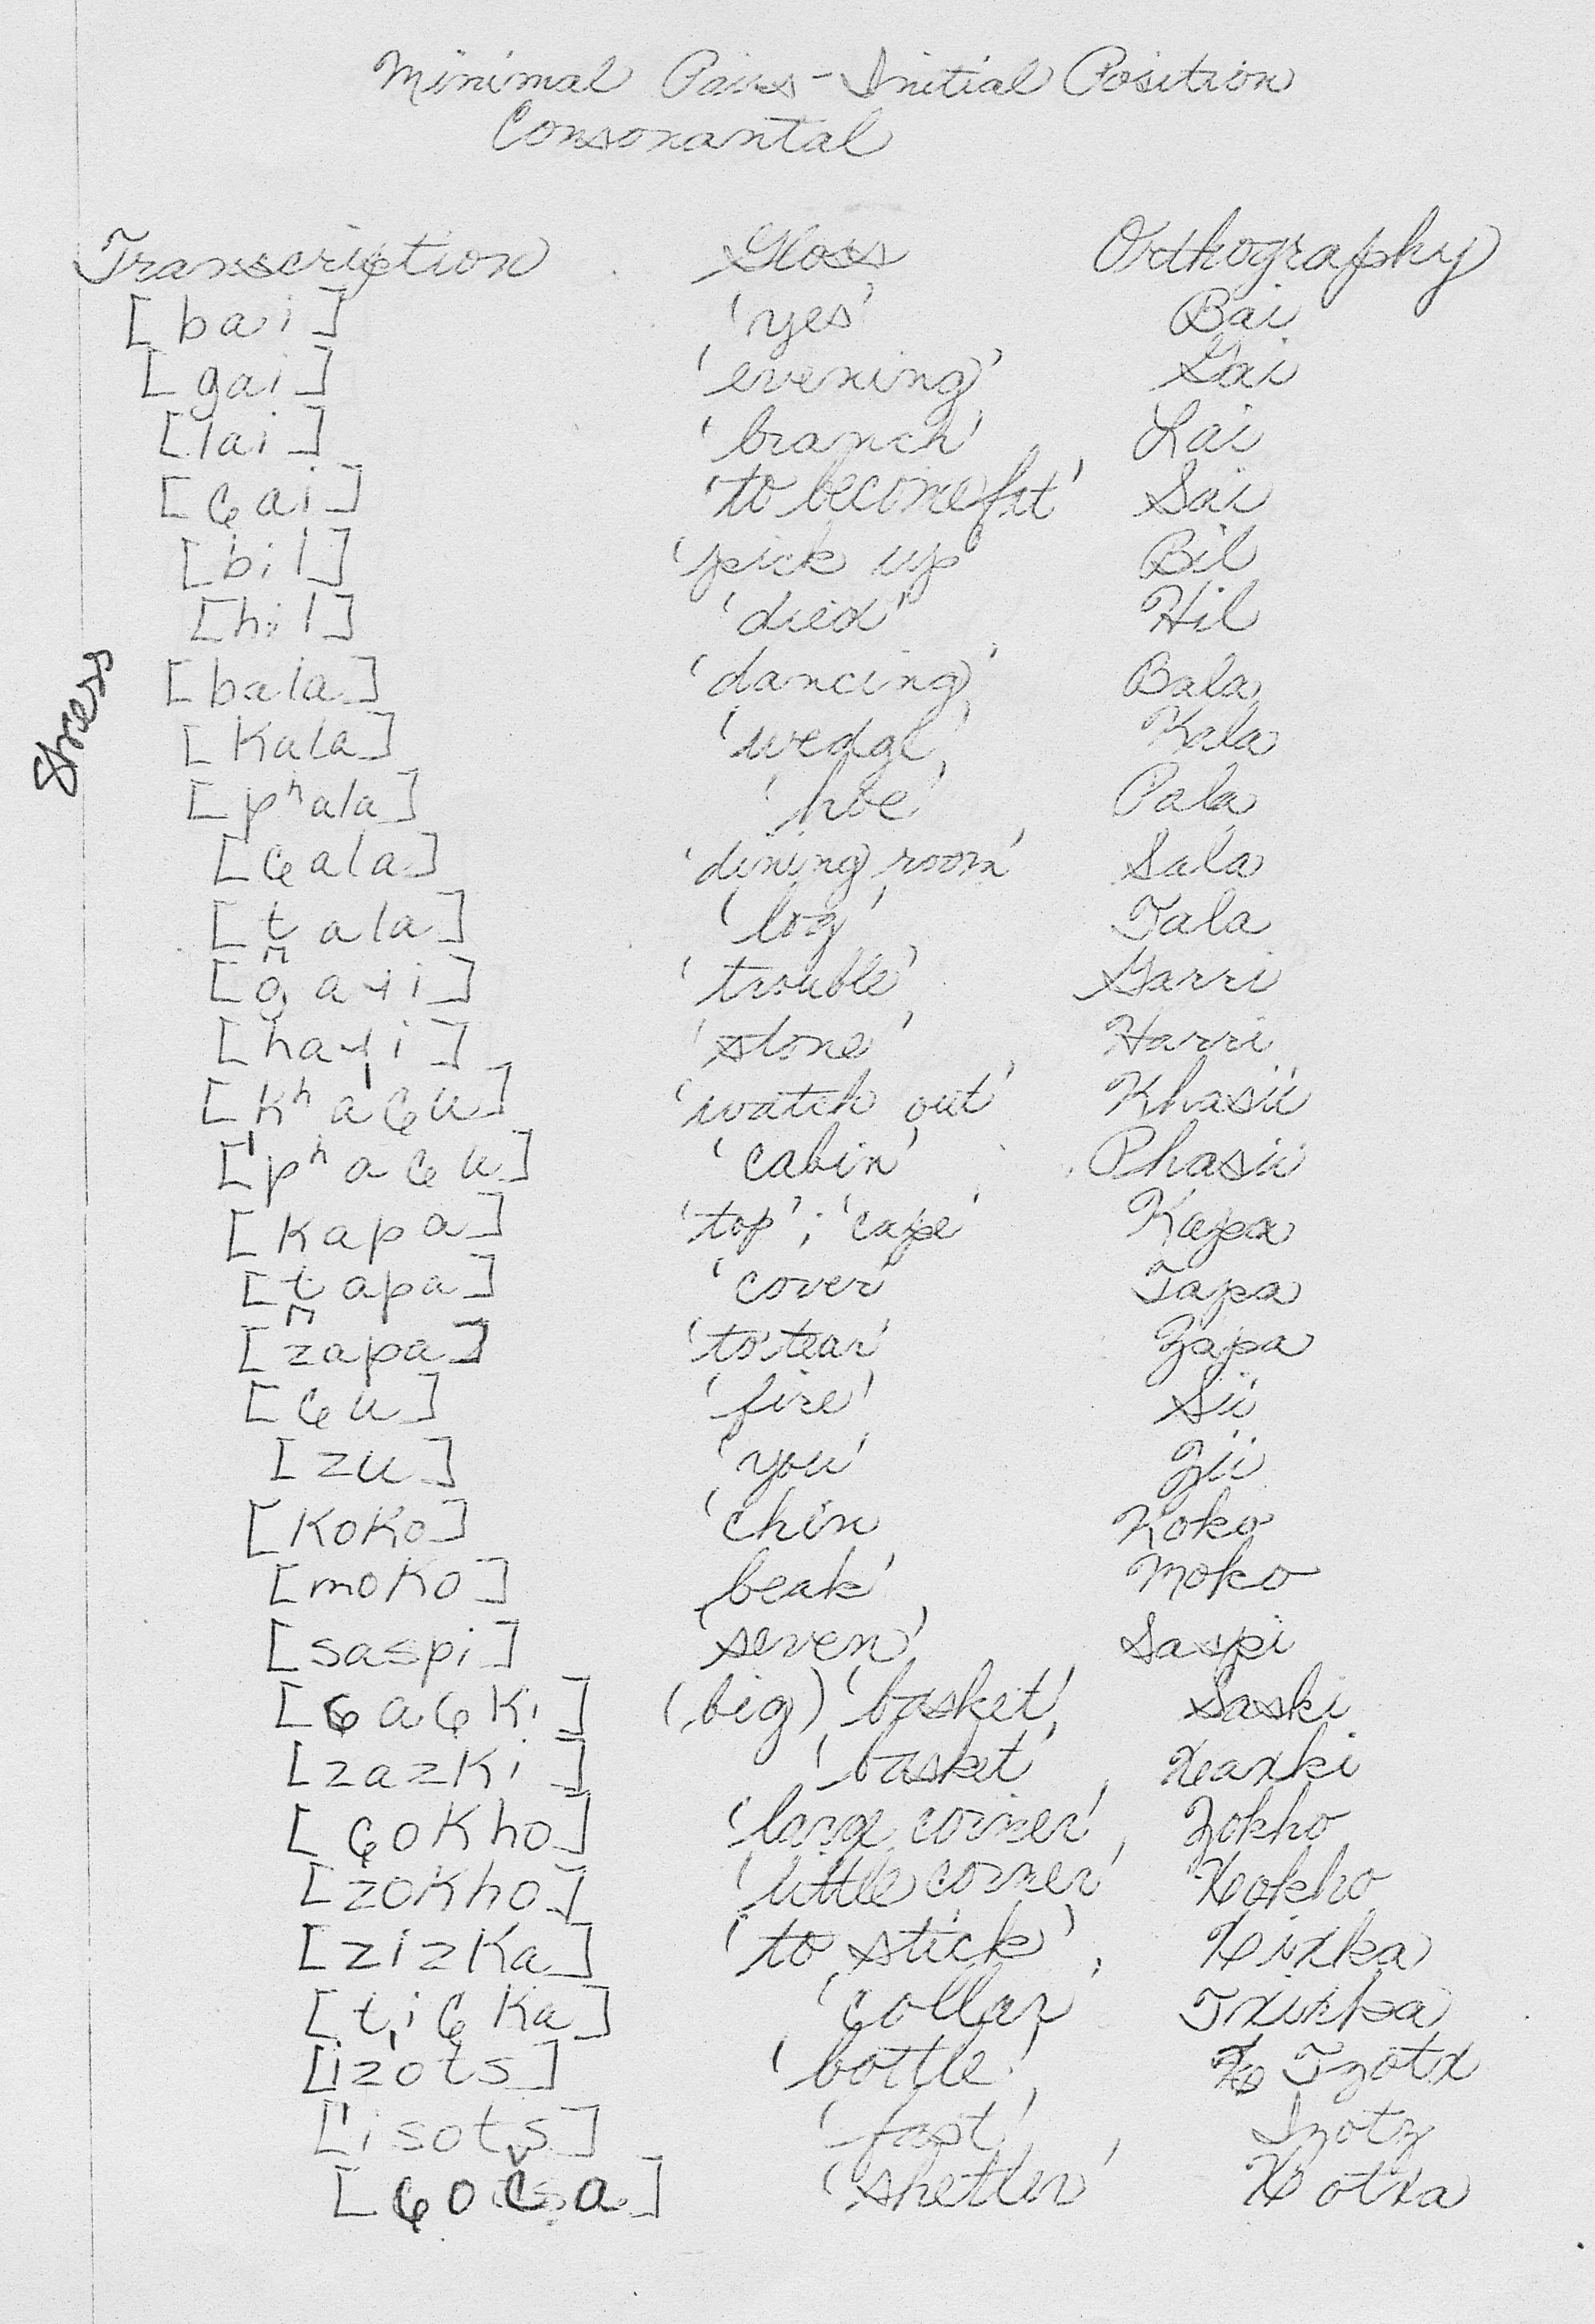 Minimal Pairs - Initial Position
Consonantal
Transcription Gloss Orthography
[bai] 'yes' Bai
[gai] 'evening' Gai
[lai] 'branch' Lai
[ɕai] 'to become fit' Sai
[bil] 'pick up Bil
[hil] 'died' Hil
Stress
[bala] 'dancing' Bala
[Kala] 'wedge' Kala
[pʰala] 'hoe' Pala
[ɕala] 'dining room' Sala
[t̪ala] 'log' Tala
[gaɹi] 'trouble' Garri
[haɹi] 'stone' Harri
[kʰaˈɕu] 'watch out' Khasü
[ˈpʰaɕu] 'cabin' Phasü
[Kapa] 'top'; 'cape' Kapa
[t̪apa] 'cover' Tapa
[zapa] 'to tear' Zapa
[ɕu] 'fire' Sü
[zu] 'you' Zü
[KoKo] 'chin Koko
[moKo] beak' Moko
[saspi] 'seven' Saspi
[ɕaɕKi] (big) 'basket' Saski
[zazKi] 'basket' Xaxki
[ɕoKho] 'large corner' Zokho
[zoKho] 'little corner' Xokho
[zizKa] 'to stick' Xixka
[tiɕKa] 'collar
[izˈots] 'bottle' Txotx
[ˈisots] 'fast' Izotz
[ɕoča] 'shelter' Xotxa